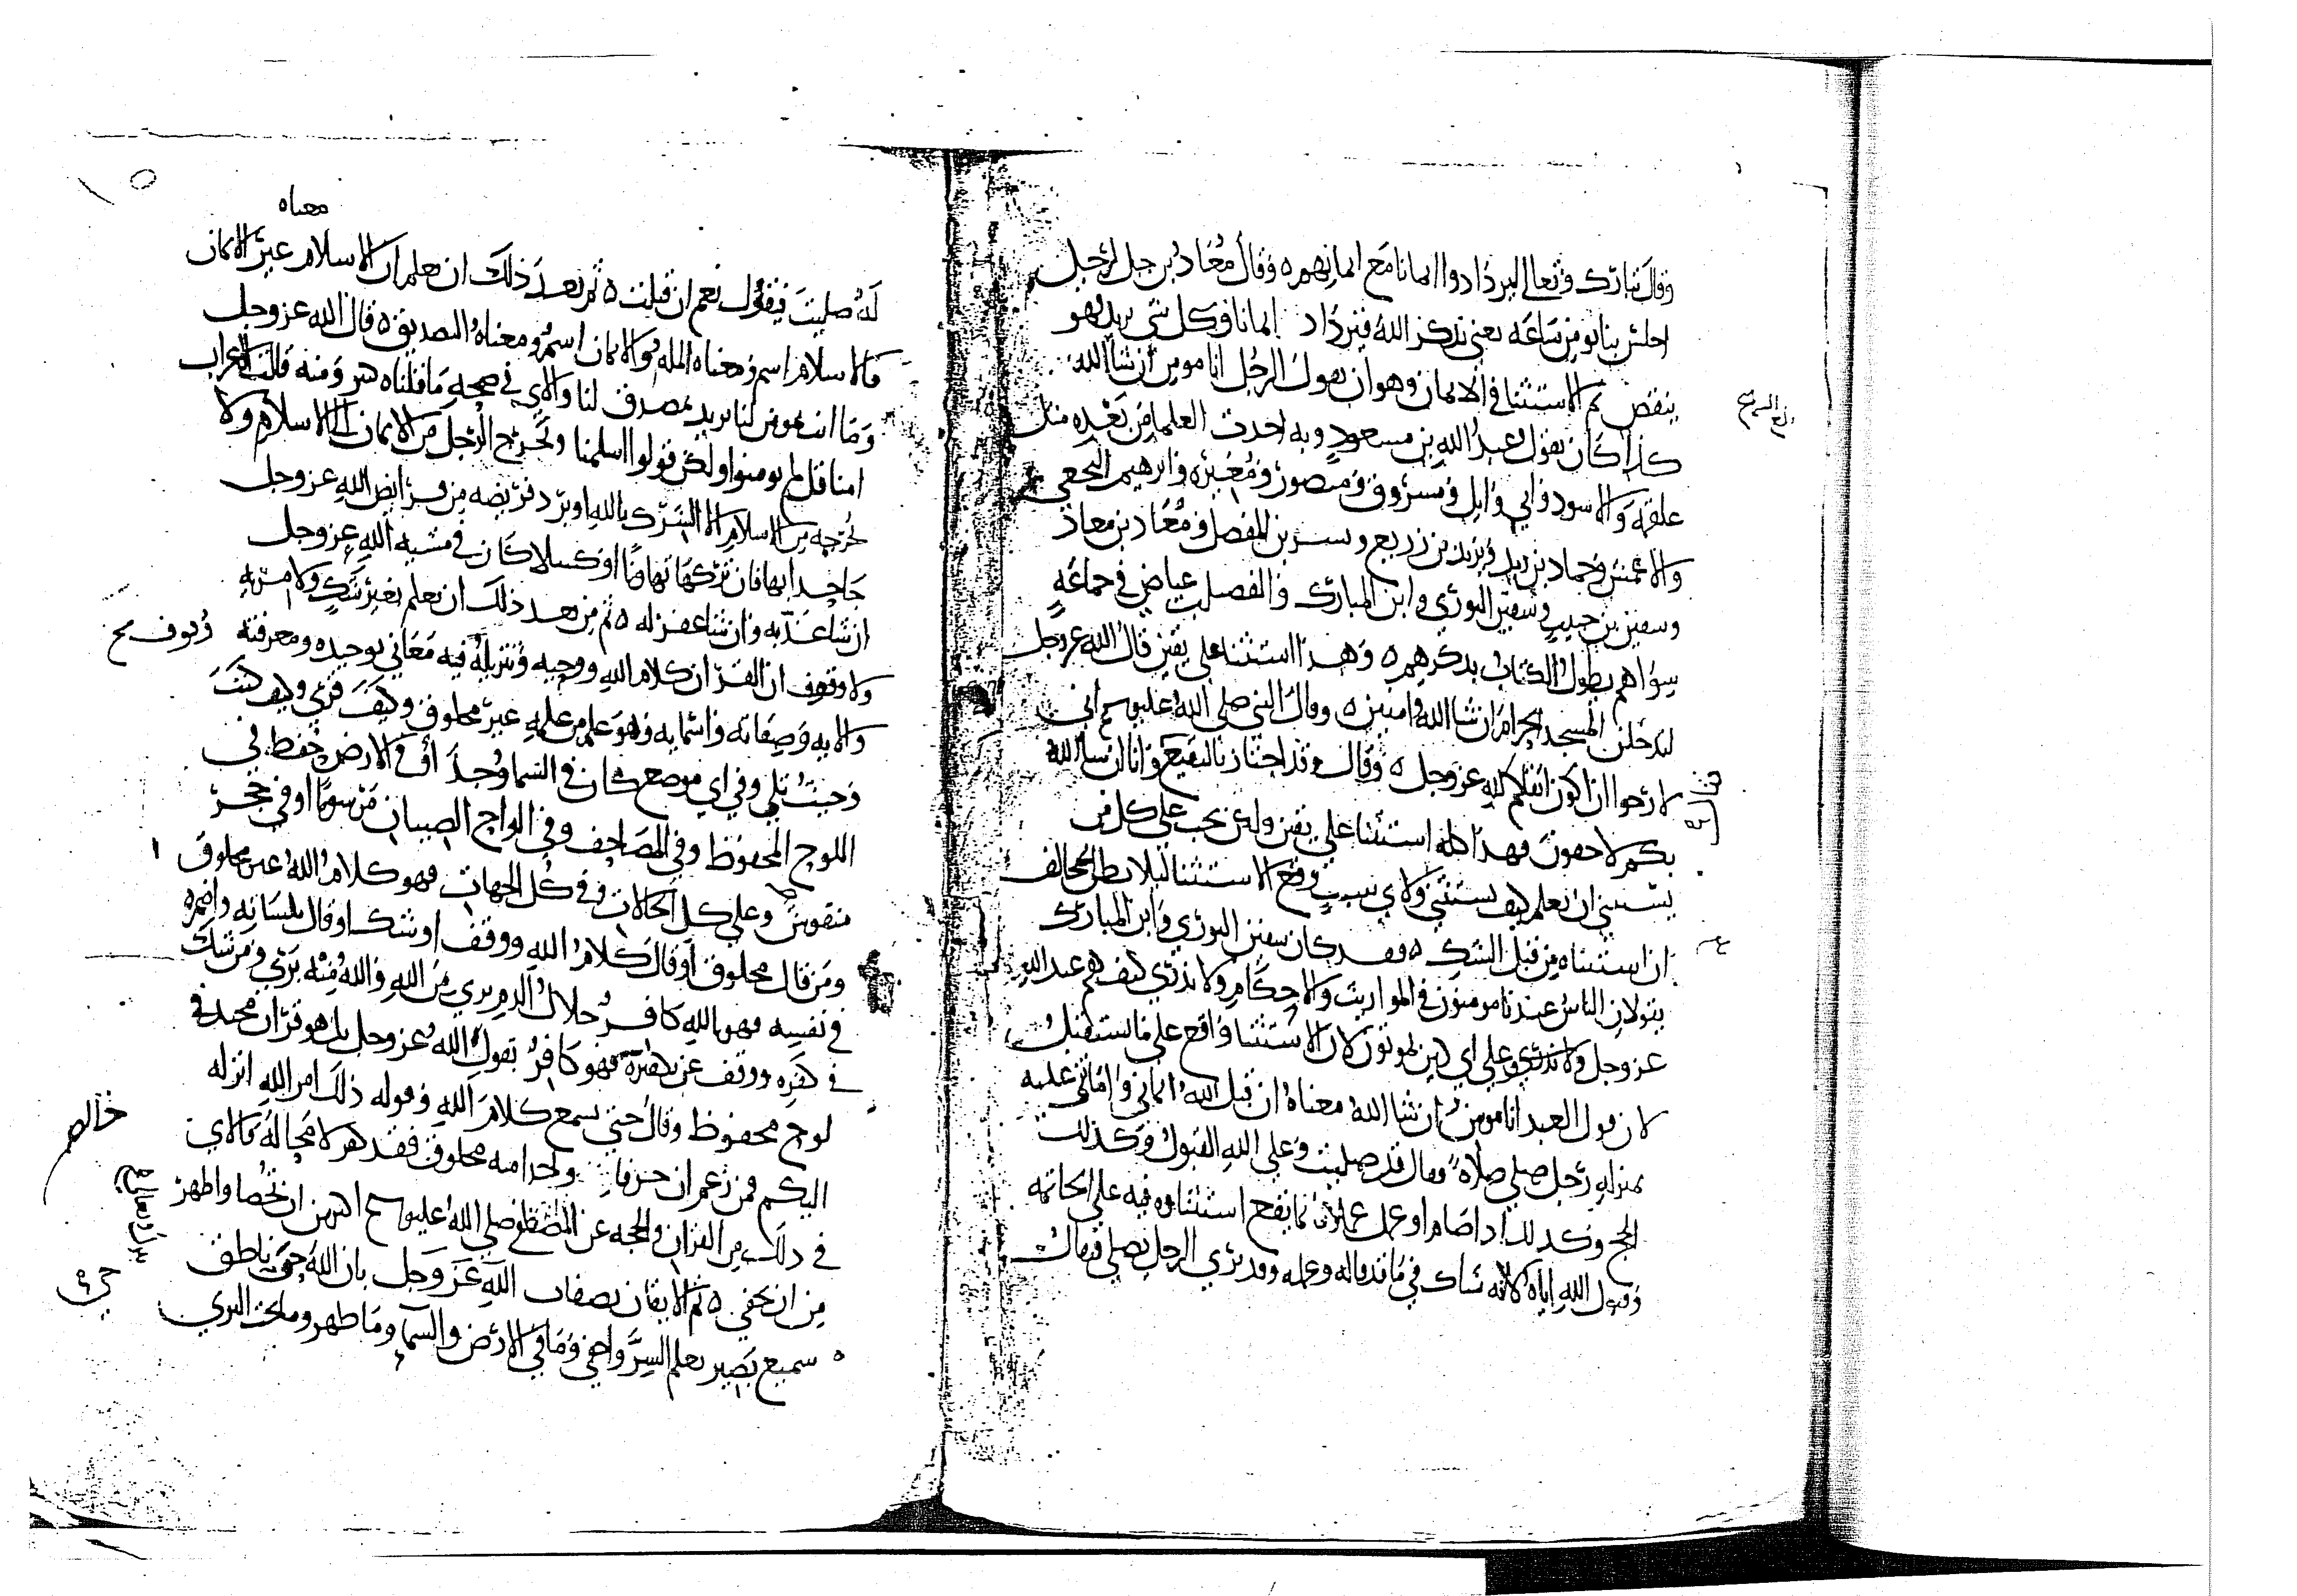 وقال تبارك وتعالى ليزدادوا ايمانا مع ايمانهم ٥ وقال معاذ بن جبل لرجل
اجلس بنا نومن ساعه يعني نذكر الله فنزداد ايمانا وكل شي يزيد فهو
ينقص ثم الاستثنا في الايمان وهو ان يقول الرجل انا مومن ان شا الله
كذا كان يقول عبد الله بن مسعود وبه اخذت العلما من بعده مثل
علقمه والاسود وابي وايل ومسروق ومنصور ومغيره وابرهيم النخعي
والاعمش وحماد بن زيد ويزيد بن زريع وبشر بن المفضل ومعاذ بن معاذ
وسفين بن حبيب وسفين الثوري وابن المبارك والفضيل بن عياض في جماعه
سواهم يطول الكتاب بذكرهم ٥ وهذا استثنا علي يقين قال الله عز وجل
لتدخلن المسجد الحرام ان شا الله امنين ٥ وقال النبي صلى الله عليه وسلم اني
لارجوا ان اكون اتقاكم لله عز وجل ٥ وقال وقد اجتاز بالبقيع وانا ان شا الله
بكم لاحقون فهذا كله استثنا علي يقين ولكن يجب علي كل من
يستثني ان يعلم كيف يستثني ولاي سبب وقع الاستثنا ليلا يظن المخالف
ان استثناه من قبل الشك ٥ فقد كان سفين الثوري وابن المبارك
يقولان الناس عندنا مومنون في المواريث والاحكام ولا ندري كيف هم عند الله
عز وجل ولا ندري علي اي دين يموتون لان الاستثنا واقع علي ما يستقبل
لان قول العبد انا مومن ان شا الله معناه ان قبل الله ايماني واماتني عليه
بمنزله رجل صلي صلاه فقال قد صليت وعلي الله القبول وكذلك
الحج وكذلك اذا صام او عمل عملا فانما يقع استثناوه فيه علي الخاتمه
وقبول الله اياه لانه شاك في ما قد قاله وعمله وقد تري الرجل يصلي فيقال
معناه
له صليت فيقول نعم ان قبلت ٥ ثم بعد ذلك ان يعلم ان الاسلام غير الايمان
فالاسلام اسم ومعناه المله والايمان اسم ومعناه التصديق ٥ قال الله عز وجل
وما انت بمومن لنا يريد بمصدق لنا والاي في صحه ما قلناه كثير ومنه قالت الاعراب
امنا قل لم تومنوا ولكن قولوا اسلمنا ويخرج الرجل من الايمان الى الاسلام ولا
يخرجه من الاسلام الا الشرك بالله او برد فريضه من فرايض الله عز وجل
جاحدا بها فان تركها تهاونا او كسلا كان في مشيه الله عز وجل
ان شا عذبه وان شا غفر له ٥ ثم من بعد ذلك ان يعلم بغير شك ولا مريه
ولا وقوف ان القران كلام الله ووحيه وتنزيله فيه معاني توحيده ومعرفته
والايه وصفاته واسمايه وهو علم من علمه غير مخلوق وكيف قري وكيف كتب
وحيث تلي وفي اي موضع كان في السما وجد او في الارض حفظ في
اللوح المحفوظ وفي المصاحف وفي الواح الصبيان مرسوما او في حجر
منقوش وعلي كل الحالات وفي كل الجهات فهو كلام الله غير مخلوق
ومن قال مخلوق او قال كلام الله ووقف او شك او قال بلسانه واضمره
في نفسه فهو بالله كافر حلال الدم بري من الله والله منه بري ومن شك
في كفره ووقف عن تكفيره فهو كافر بقول الله عز وجل بل هو قران مجيد في
لوح محفوظ وقال حتي يسمع كلام الله وقوله ذلك امر الله انزله
اليكم فمن زعم ان حرفا واحدا منه مخلوق فقد كفر لا محاله فالاي
في ذلك من القران والحجه عن المصطفي صلى الله عليه وسلم اكثر من ان تحصا واظهر
من ان تخفي ٥ ثم الايمان بصفات الله عز وجل بان الله حي ناطق
سميع بصير يعلم السر واخفي وما في الارض والسما وما ظهر وما تحت الثري